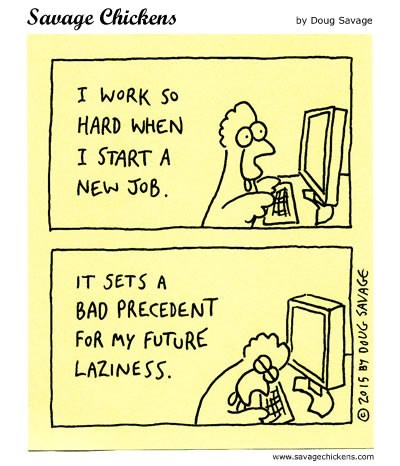 Savage Chickens
by Doug Savage
I WORK SO
HARD WHEN
I START A
NEW JOB.
IT SETS A
BAD PRECEDENT
FOR MY FUTURE
LAZINESS.
© 2015 BY DOUG SAVAGE
www.savagechickens.com